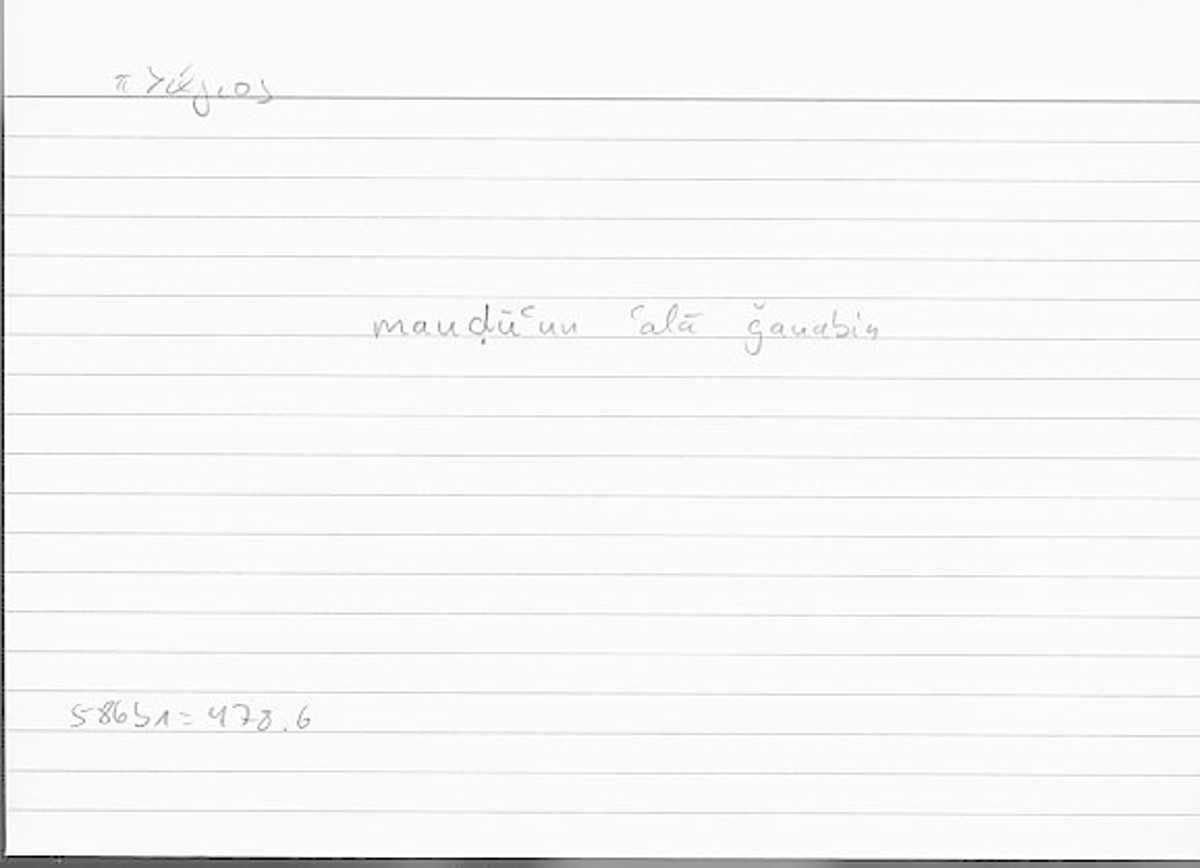 πλάγιος
mauḍūʿun ʿalā ǧanabin
586b1 = 478.6